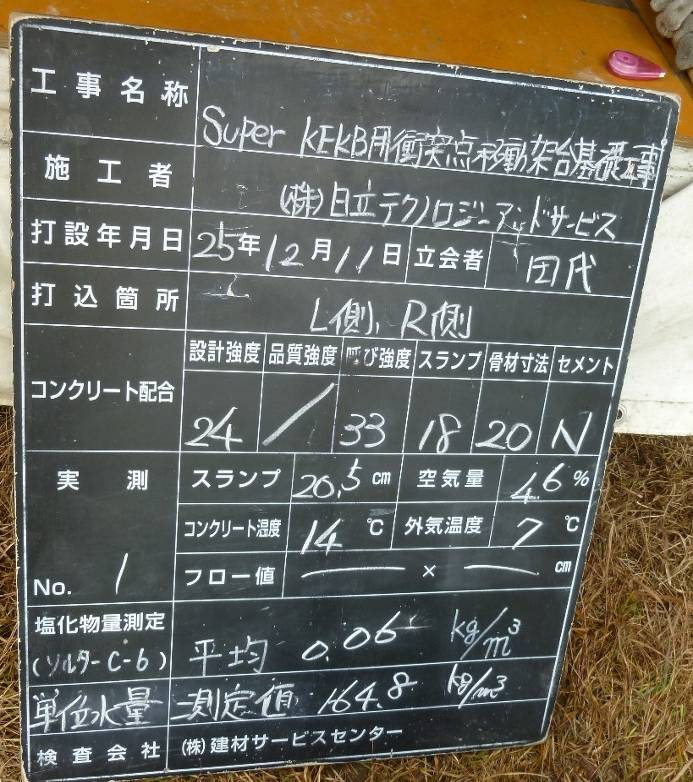 工事名称 Super KEKB用衝突点移動架台基礎工事
施工者 (株)日立テクノロジーアンドサービス
打設年月日 25年12月11日 立会者 田代
打込箇所 L側、R側
コンクリート配合 設計強度 品質強度 呼び強度 スランプ 骨材寸法 セメント
24 / 33 18 20 N
実測 スランプ 20.5 cm 空気量 4.6 %
コンクリート温度 14 ℃ 外気温度 7 ℃
No. 1 フロー値 — × — cm
塩化物量測定 (ソルターC-6) 平均 0.06 kg/m³
単位水量 測定値 164.8 kg/m³
検査会社 (株)建材サービスセンター